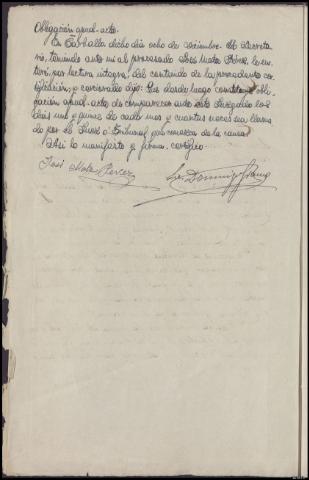 Obligación apud-acta.
En Carballo dicho día ocho de diciembre. El secreta
rio, teniendo ante mí al procesado José Mata Pérez, le en
teré, por lectura íntegra, del contenido de la precedente
ción, y cerciorado dijo: Que desde luego constituye obli
gación apud-acta de comparecer ante este Juzgado los
días uno y quince de cada mes y cuantas veces sea llama
do por el Juez o Tribunal que conozca de la causa.
Así lo manifestó y firma, certifico.
José Mata Perez